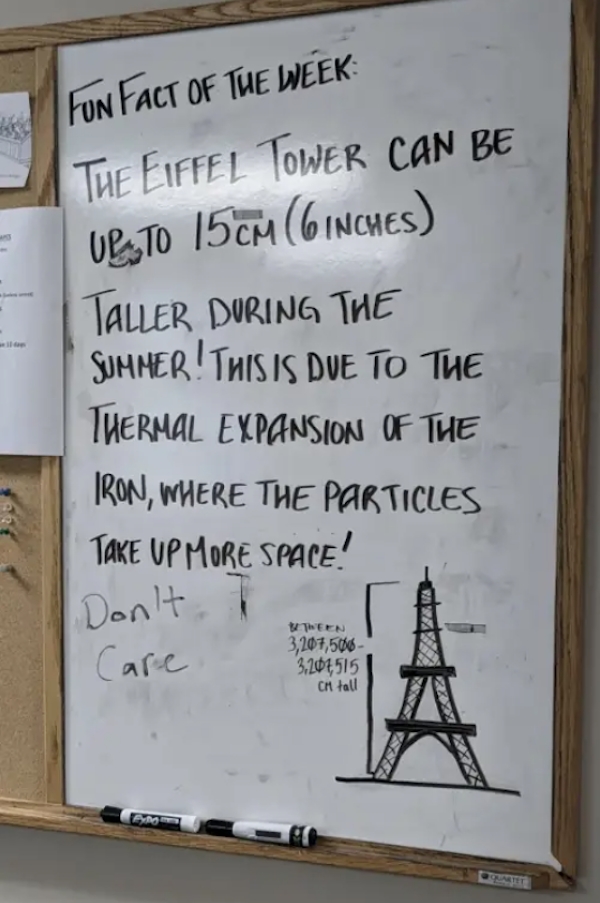 FUN FACT OF THE WEEK:
THE EIFFEL TOWER CAN BE
UP TO 15CM (6 INCHES)
TALLER DURING THE
SUMMER! THIS IS DUE TO THE
THERMAL EXPANSION OF THE
IRON, WHERE THE PARTICLES
TAKE UP MORE SPACE!
Don't
Care
BETWEEN
3,207,500-
3,207,515
CM tall
EXPO
QUARTET